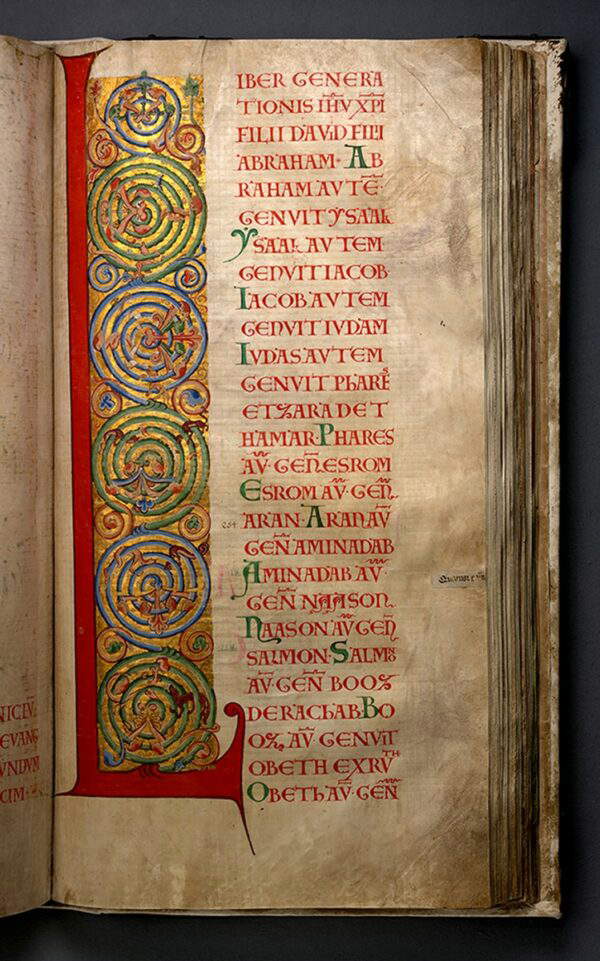 NICIV̄
EVANG
VNDVM
CIM·
LIBER GENERA
TIONIS IH̄V XP̄I
FILII DAVID FILII
ABRAHAM· AB
RAHAM AVTĒ·
GENVIT YSAAK
YSAAK AVTEM
GENVIT IACOB·
IACOB AVTEM
GENVIT IVDAM
IVDAS AVTEM
GENVIT PHARES
ET ZARA DE T
HAMAR· PHARES
AV̄· GEN̄· ESROM
ESROM AV̄· GEN̄·
ARAN· ARAN AV̄
GEN̄ AMINADAB
AMINADAB AV̄·
GEN̄ NAASON·
NAASON AV̄ GEN̄
SALMON· SALMō
AV̄· GEN̄ BOOZ
DE RACHAB· BO
OZ· AV̄ GENVIT
OBETH EX RVTH
OBETH AV̄· GEN̄